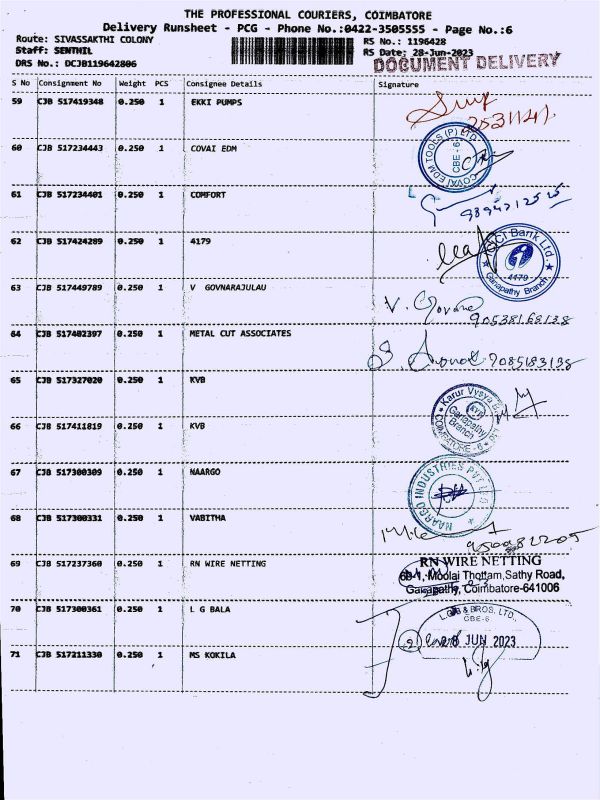 THE PROFESSIONAL COURIERS, COIMBATORE
Delivery Runsheet - PCG - Phone No.:0422-3505555 - Page No.:6
Route: SIVASSAKTHI COLONY
RS No.: 1196428
Staff: SENTHIL
RS Date: 28-Jun-2023
DRS No.: DCJB119642806
DOCUMENT DELIVERY
S No Consignment No Weight PCS Consignee Details Signature
59 CJB 517419348 0.250 1 EKKI PUMPS
60 CJB 517234443 0.250 1 COVAI EDM
COVAI EDM TOOLS (P) LTD CBE - 6
61 CJB 517234401 0.250 1 COMFORT
62 CJB 517424289 0.250 1 4179
ICICI Bank Ltd. 4179 Ganapathy Branch
63 CJB 517449789 0.250 1 V GOVNARAJULAU
64 CJB 517402397 0.250 1 METAL CUT ASSOCIATES
65 CJB 517327020 0.250 1 KVB
Karur Vysya KVB Ganapathy Branch COIMBATORE - 6
66 CJB 517411819 0.250 1 KVB
67 CJB 517300309 0.250 1 NAARGO
NAARGO INDUSTRIES PVT LTD
68 CJB 517300331 0.250 1 VABITHA
69 CJB 517237360 0.250 1 RN WIRE NETTING
RN WIRE NETTING
6B-1, Moolai Thottam,Sathy Road,
Ganapathy, Coimbatore-641006
70 CJB 517300361 0.250 1 L G BALA
L.G.B & BROS. LTD.,
CBE-6
8 JUN 2023
71 CJB 517211330 0.250 1 MS KOKILA